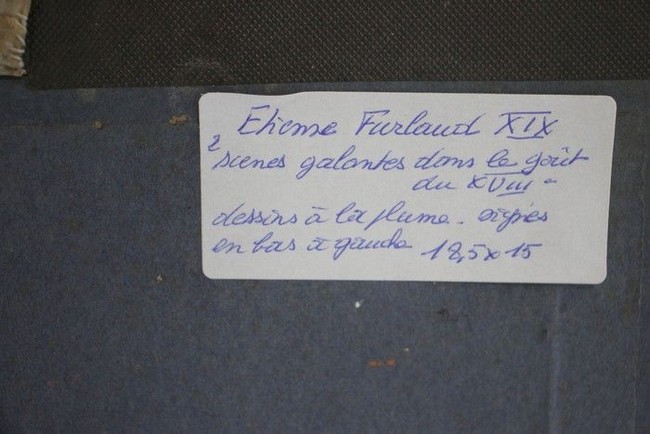 Etienne Furlaud XIX
2 scènes galantes dans le goût
du XVIII -
dessins à la plume - signés
en bas à gauche 12,5 x 15